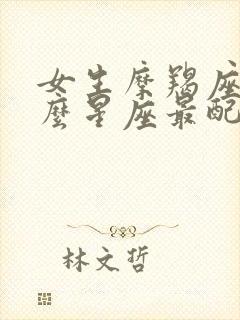 女生摩羯座
麽星座最配
林文哲